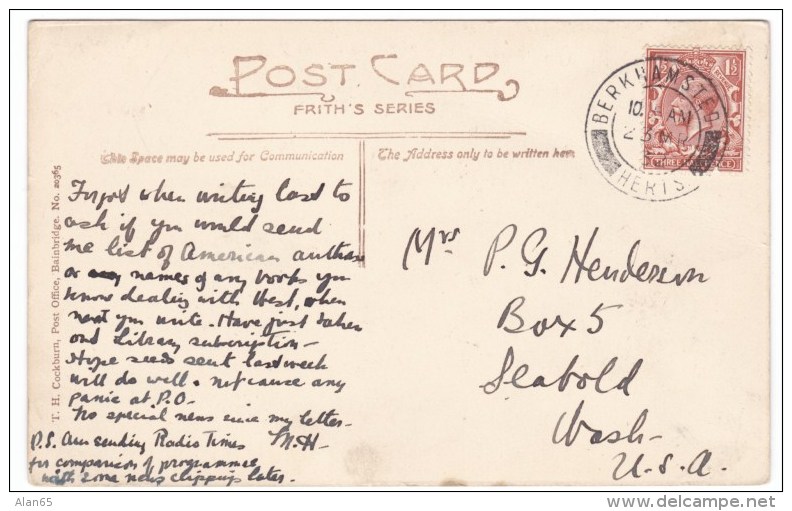 POST CARD
FRITH'S SERIES
This Space may be used for Communication
The Address only to be written here
T. H. Cockburn, Post Office, Bainbridge. No. 20365
BERKHAMSTED
10. AM
HERTS
1½
THREE HALFPENCE
Forgot when writing last to
ask if you would send
me list of American authors
or any names of any books you
know dealing with West, when
next you write. Have just taken
out Library subscription -
Hope seeds sent last week
will do well & not cause any
panic at P.O. -
No special news since my letter -
M.H -
P.S. Am sending Radio Times
for comparison of programmes
with some news clippings later.
Mrs P. G. Henderson
Box 5
Seabold
Wash -
U.S.A.
Alan65
delcampe.net